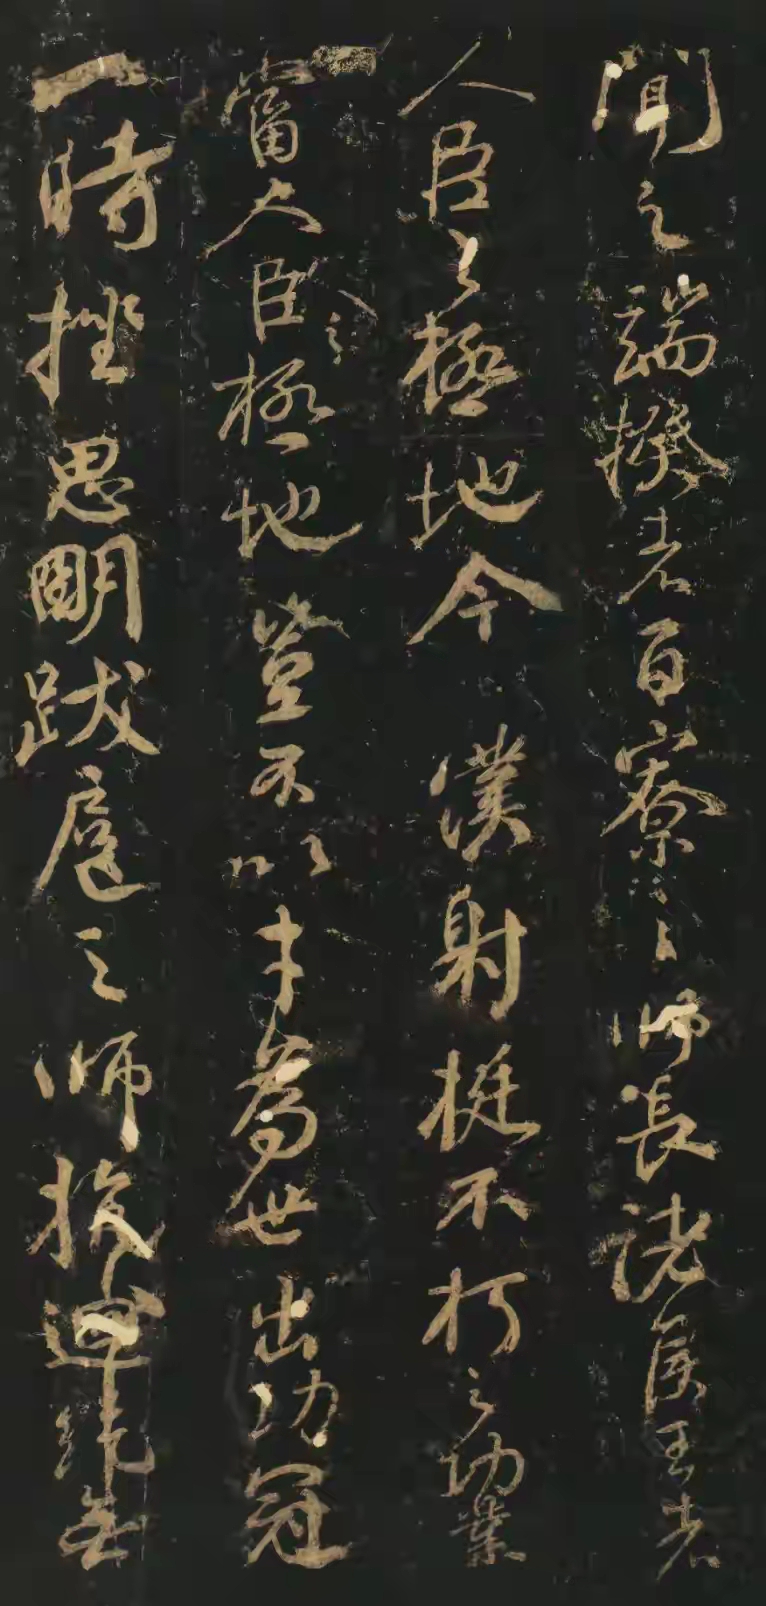 聞之端揆者百寮之師長諸侯王者
人臣之極地今僕射挺不朽之功業
當人臣極地豈不以才為世出功冠
人之
一時挫思明跋扈之師抗迴紇無